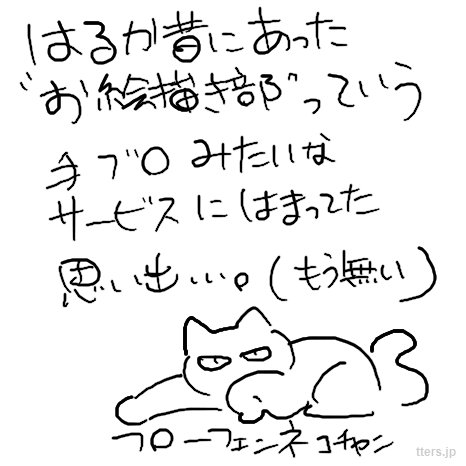 はるか昔にあった
"お絵描き部"っていう
手ブロみたいな
サービスにはまってた
思い出…。(もう無い)
フローフェンネコチャン
tters.jp